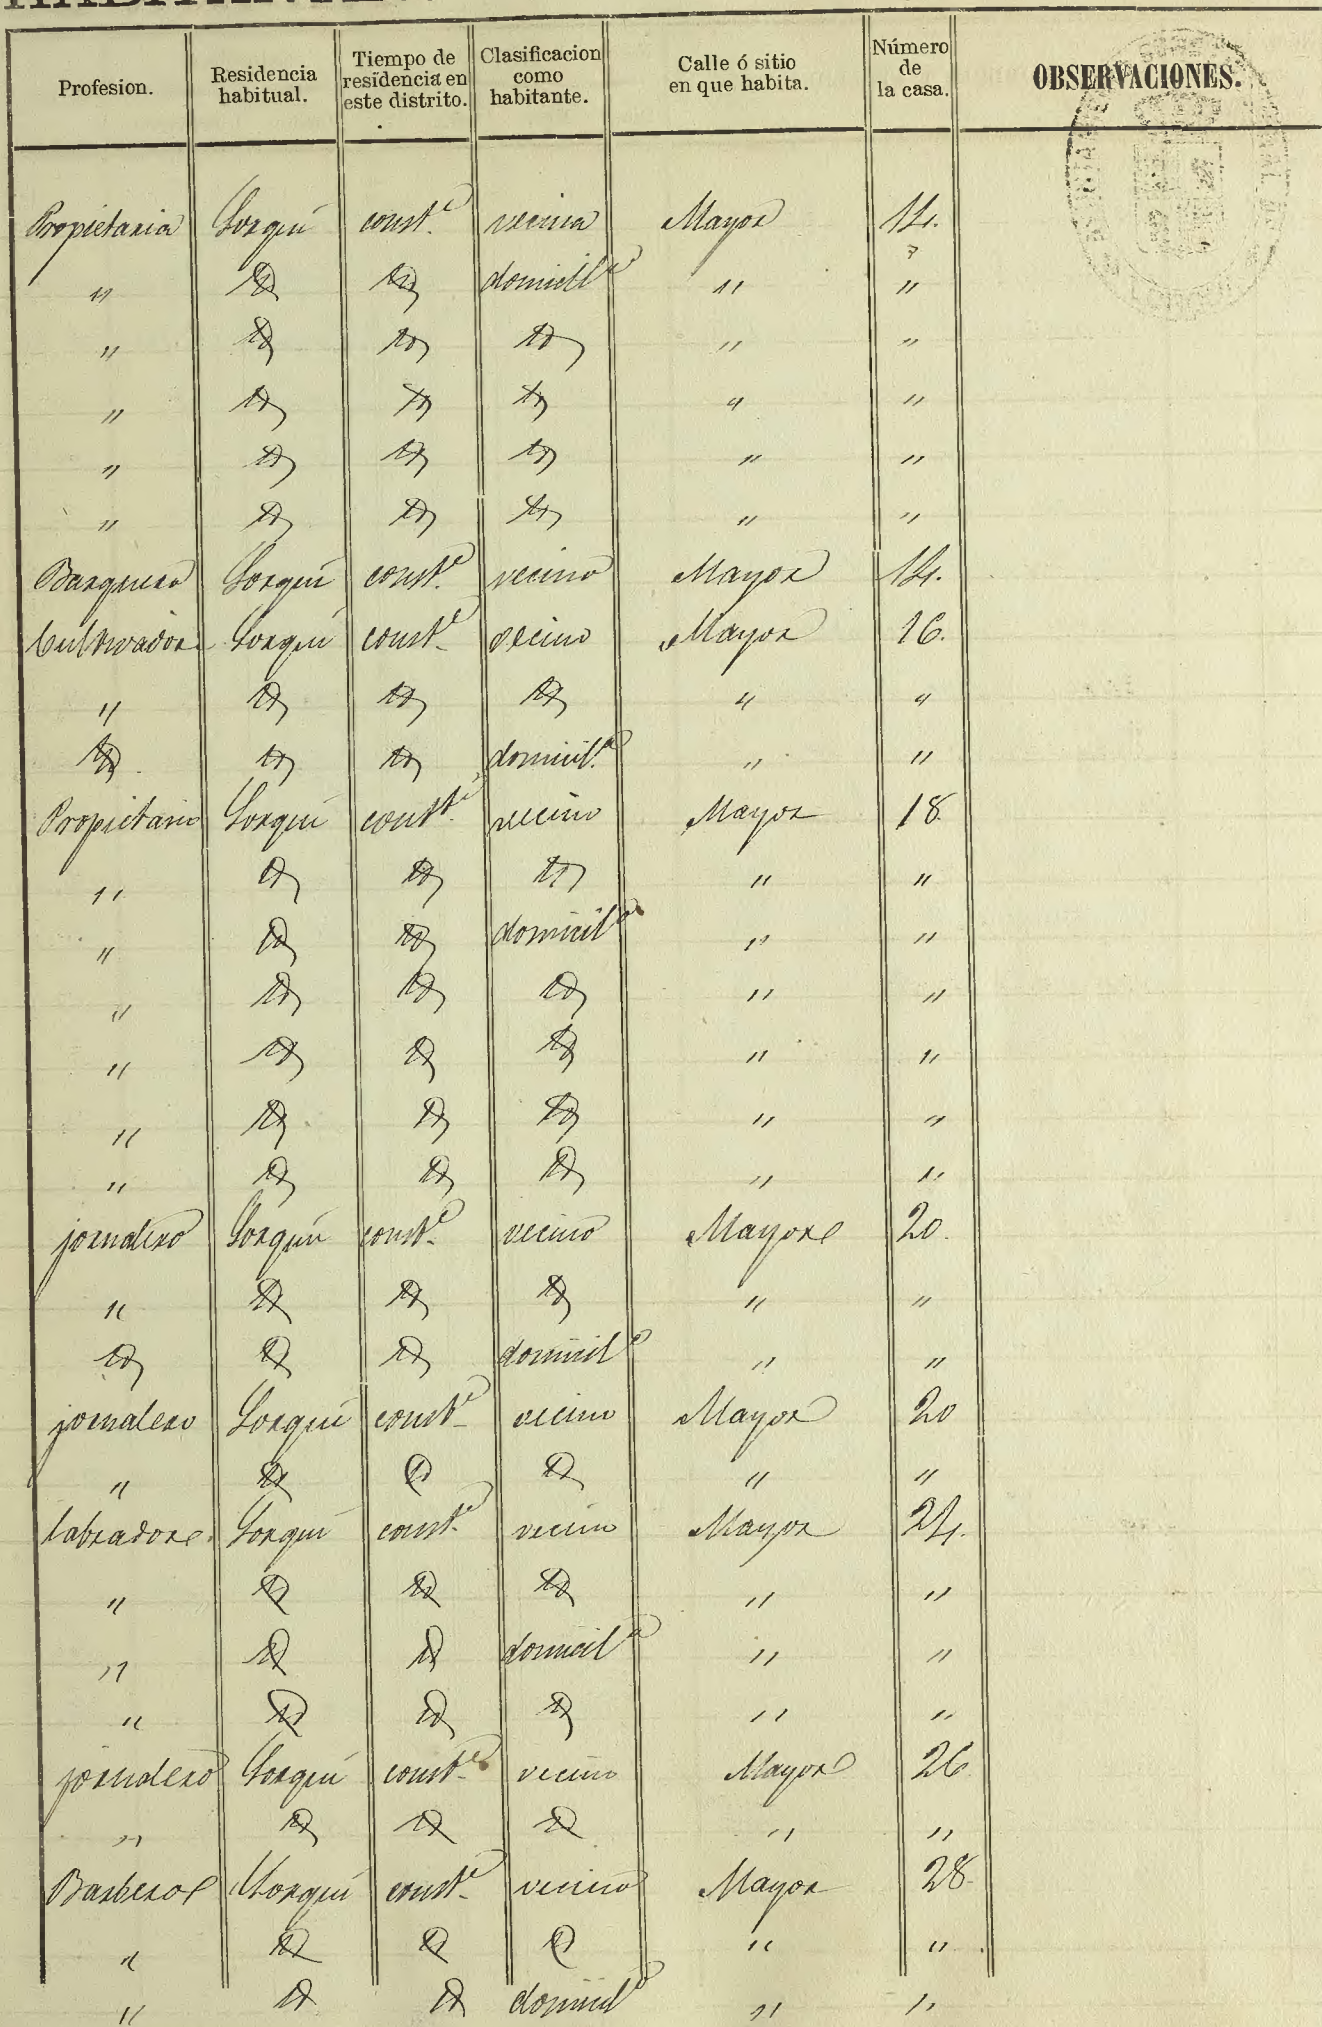 Profesion. Residencia habitual. Tiempo de residencia en este distrito. Clasificacion como habitante. Calle ó sitio en que habita. Número de la casa. OBSERVACIONES.
Propietaria Lorquí const.e vecina Mayor 14.
" id id domicil.a " "
" id id id " "
" id id id " "
" id id id " "
" id id id " "
Barquero Lorquí const.e vecino Mayor 14.
Cultivador Lorquí const.e vecino Mayor 16.
" id id id " "
id id id domicil.o " "
Propietario Lorquí const.e vecino Mayor 18.
" id id id " "
" id id domicil.o " "
" id id id " "
" id id id " "
" id id id " "
" id id id " "
jornalero Lorquí const.e vecino Mayor 20.
" id id id " "
id id id domicil.o " "
jornalero Lorquí const.e vecino Mayor 20
" id id id " "
labrador Lorquí const.e vecino Mayor 24.
" id id id " "
" id id domicil.a " "
" id id id " "
jornalero Lorquí const.e vecino Mayor 26.
" id id id " "
Barbero Lorquí const.e vecino Mayor 28.
" id id id " "
" id id domicil.o " "